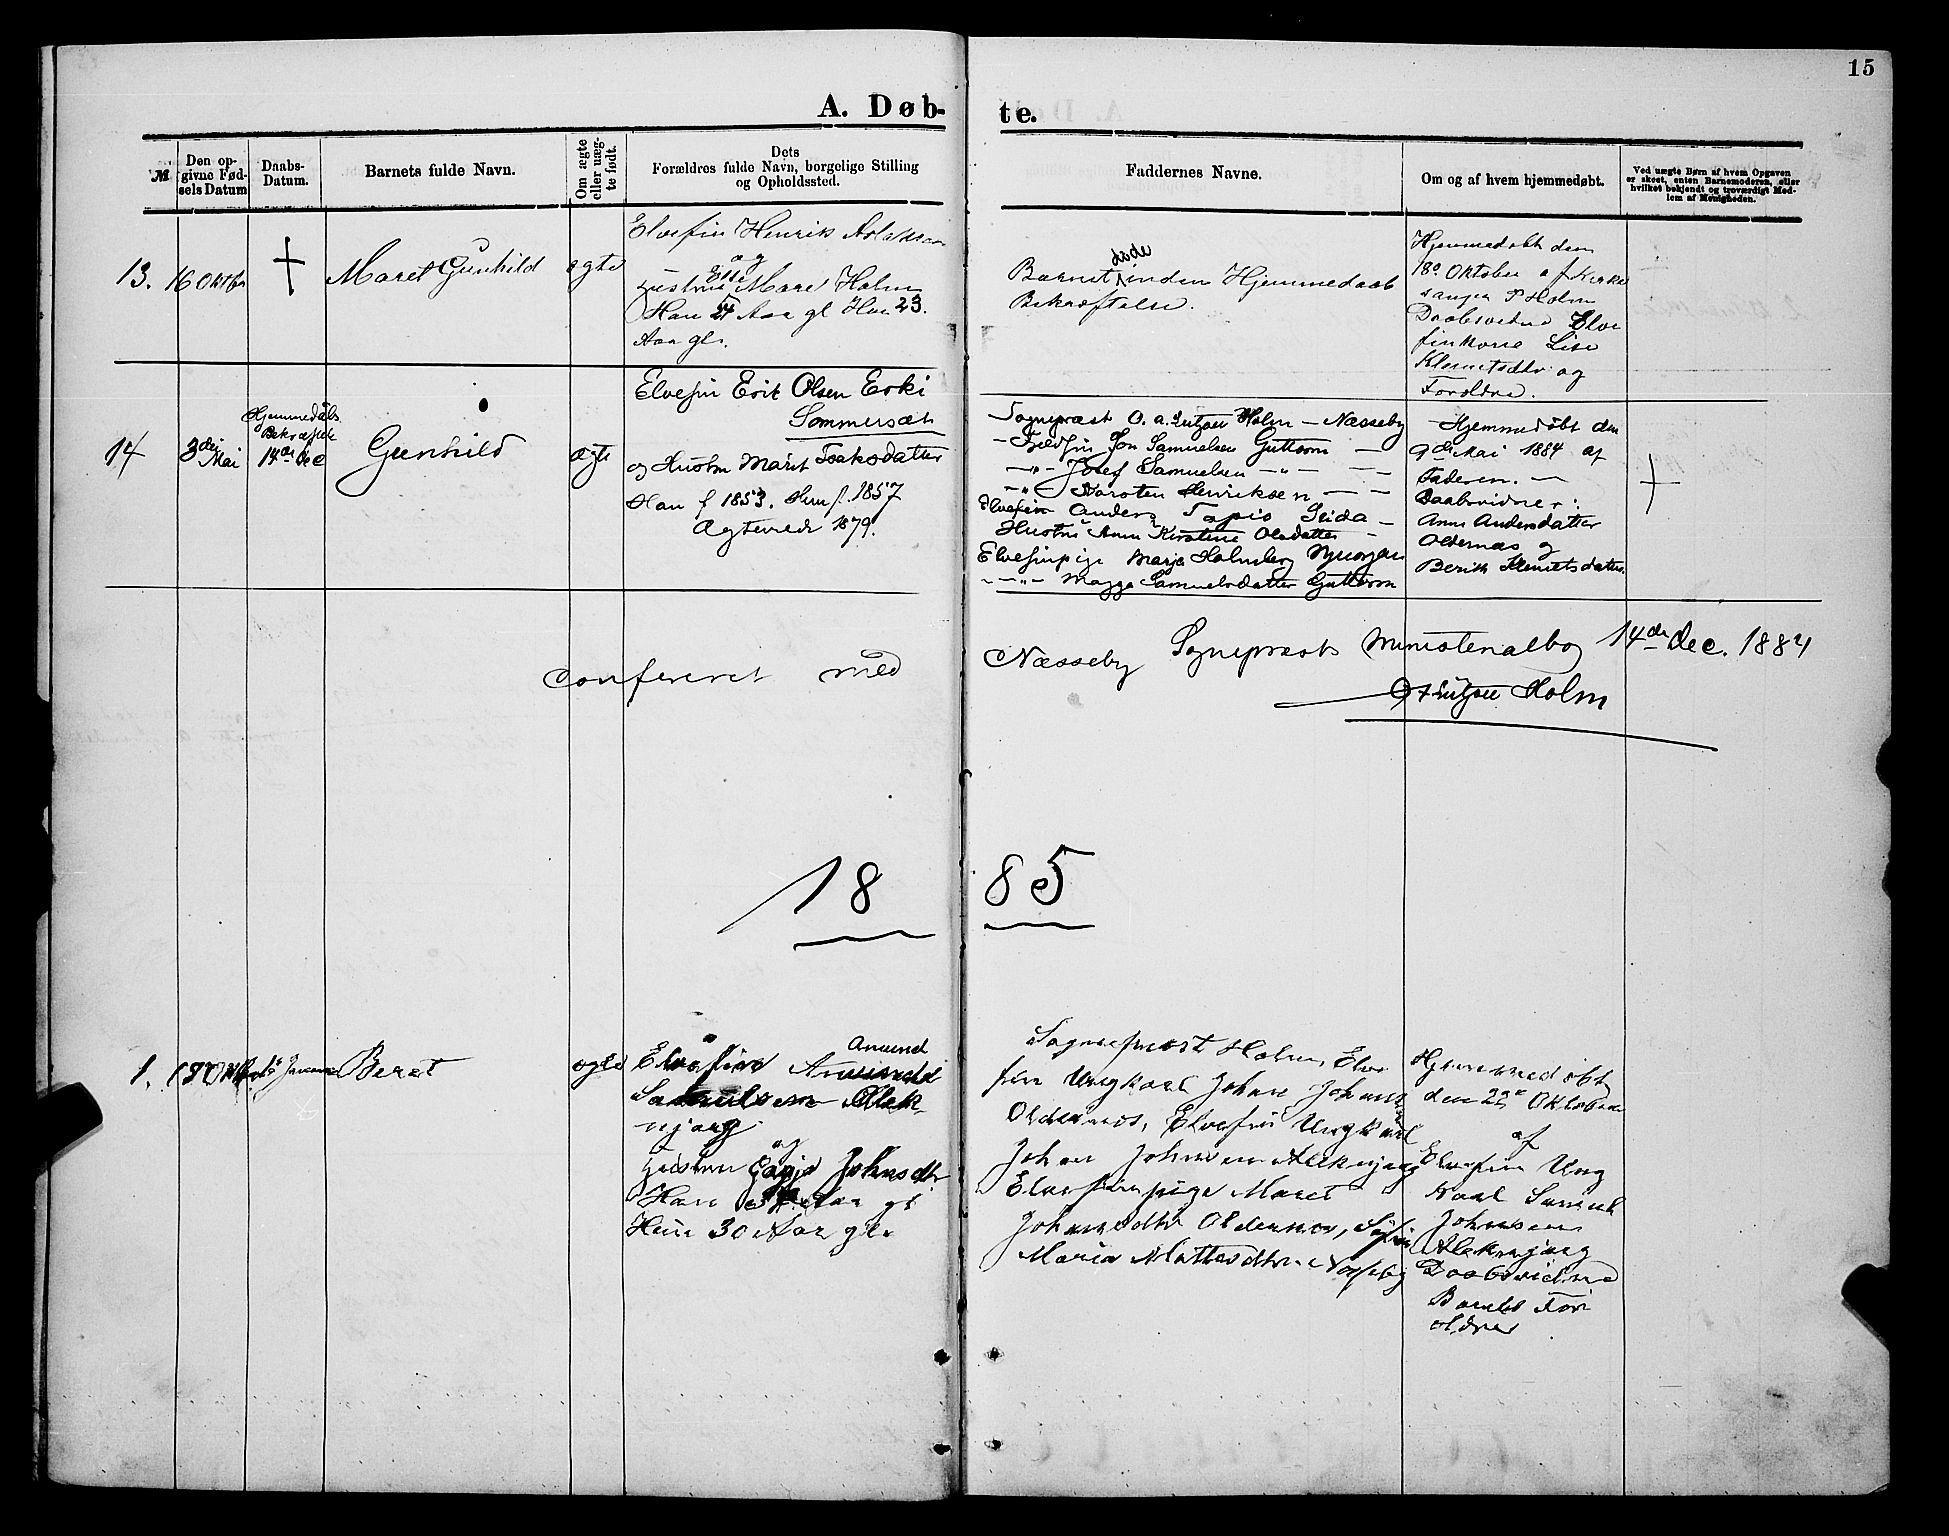 15
A. Døb-
te.
№
Den op-
givne Fød-
sels Datum
Daabs-
Datum.
Barnets fulde Navn.
Om ægte
eller uæg-
te født.
Dets
Forældres fulde Navn, borgelige Stilling
og Opholdssted.
Faddernes Navne.
Om og af hvem hjemmedøbt.
Ved uægte Børn af hvem Opgaven
er skeet, enten Barnemoderen, eller
hvilket bekjendt og troværdigt Med-
lem af Menigheden.
13.
16 Oktbr
Maret Gunhild
ægte
Elvefin Henrik Aslaksen
og
Hustrue Elle Mare Holm
Han Aar gl Hun 23.
Aar gl.
Barnet døde inden Hjemmedaab
Bekræftelse.
Hjemmedøbt den
18de Oktober af Kirke
sanger P Holm
Daabsvidne Elve
finkone Lise
Klemetsdtr og
Forældre.
14
3die Mai
Hjemmedåbs
Bekræftede
14de Dec
Gunhild
ægte
Elvefin Erik Olsen Erki
Sommersæt
og Hustru Marit Isaksdatter
Han f 1853. Hun f. 1857
Ægteviede 1879.
Sognepræst O. a. Holm - Næsseby
- Fjeldfin Jon Samuelsen Guttorm -
-"- Josef Samuelsen -"- -
-"- Karsten Henriksen - -
Elvefin Anders Tapio Seida -
Hustru Anne Kirstine Olsdatter -
Elvefinpige Marja Holmberg Nyborgen
-"- Magga Samuelsdatter Guttorm
Hjemmedøbt den
9de Mai 1884 af
Faderen. -
Daabsvidner:
Anne Andersdatter
Oldernæs og
Berith Klemetsdatter.
Confereret med
Næsseby Sognepræsts Ministerialbog 14de Dec. 1884
Holm
18
85
1.
Beret
ægte
Elvefin Amund
Samuelsen Alek-
njarg
og
Hustru Johnsdtr
Han Aar gl
Hun 30 Aar gl.
Sognepræst Holm, Elve
fin Ungkarl Johan Johnsen
Oldernæs, Elvefin Ungkarl
Johan Johnsen Aleknjarg
Elvefinpige Maret
Johnsedtr Oldernæs, Søfin
Maria Mattesdtr. Næsseby
Hjemmedøbt
den 22de Oktober
af
Elvefin Ung
karl Samuel
Johnsen
Aleknjarg
Daabsvidne
Barnets For
ældrer